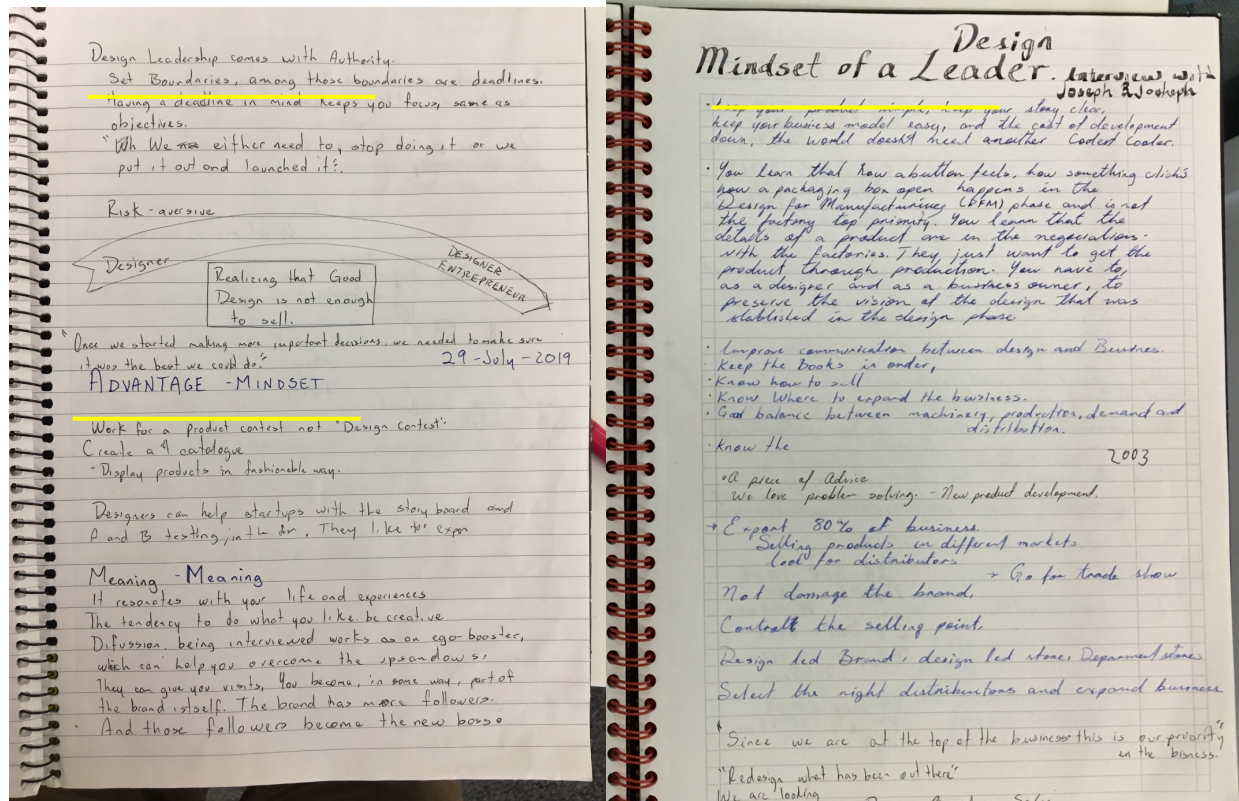 Design Leadership comes with Authority.
Set Boundaries, among those boundaries are deadlines.
Having a deadline in mind keeps you focus, same as
objectives.
We either need to, stop doing it or we
put it out and launched it".
Risk-aversive
Designer
DESIGNER
ENTREPRENEUR
Realizing that Good
Design is not enough
to sell.
"Once we started making more important decisions, we needed to make sure
it was the best we could do."
29-July-2019
ADVANTAGE -MINDSET
Work for a product contest not "Design Contest".
Create a catalogue
- Display products in fashionable way.
Designers can help startups with the story board and
A and B testing, in the for. They like to expor
Meaning - Meaning
It resonates with your life and experiences
The tendency to do what you like. be creative
Difussion, being interviewed works as an ego-booster,
which can help you overcome the upsandows,
They can give you visits, You become, in some way, part of
the brand istself. The brand has more followers.
And those followers become the new boss.
Design
Mindset of a Leader. Interview with
Joseph & Josheph
• keep your product simple, keep your story clear,
keep your business model easy, and the cost of development
down, the world doesn't need another Coolest Cooler.
• You learn that how a button feels, how something clicks
how a packaging box open happens in the
Design for Manufacturing (DFM) phase and is not
the factory top priority. You learn that the
details of a product are in the negociations
with the factories. They, just want to get the
product through production. You have to,
as a designer and as a business owner, to
preserve the vision of the design that was
stablished in the design phase
• Improve communication between design and Business.
• Keep the Books in order,
• Know how to sell
• Know where to expand the business.
• Good balance between machinery, production, demand and
distribution.
• Know the
2003
• A piece of Advice
We love problem solving. - New product development.
→ Export 80% of business.
Selling products in different markets
look for distributors
→ Go for trade show
Not damage the brand,
Controll the selling point,
Design led Brand, design led store, Deparment stores
Select the right distributors and expand business
"Since we are at the top of the business this is our priority"
in the bisness.
"Redesign what has been out there"
We are looking